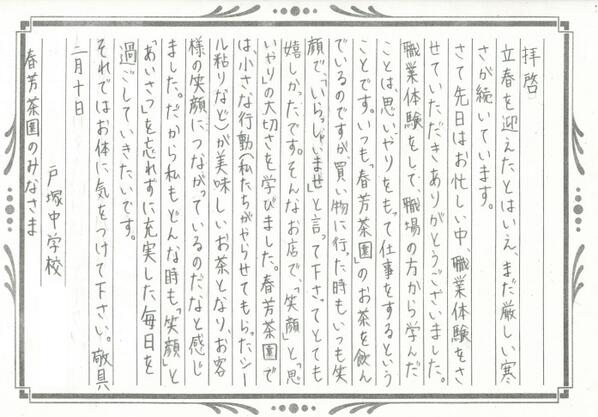 拝啓
立春を迎えたとはいえ、まだ厳しい寒
さが続いています。
さて先日はお忙しい中、職業体験をさ
せていただきありがとうございました。
職業体験をして、職場の方から学んだ
ことは、思いやりをもって仕事をするという
ことです。いつも「春芳茶園」のお茶を飲ん
でいるのですが買い物に行った時もいつも笑
顔で、「いらっしゃいませ」と言って下さってとても
嬉しかったです。そんなお店で、「笑顔」と「思
いやり」の大切さを学びました。春芳茶園で
は、小さな行動(私たちがやらせてもらったシー
ル粘りなど)が美味しいお茶となり、お客
様の笑顔につながっているのだなと感じ
ました。だから私もどんな時も「笑顔」と
「あいさつ」を忘れずに充実した毎日を
過ごしていきたいです。
それではお体に気をつけて下さい。敬具
二月十日
戸塚中学校
春芳茶園のみなさま